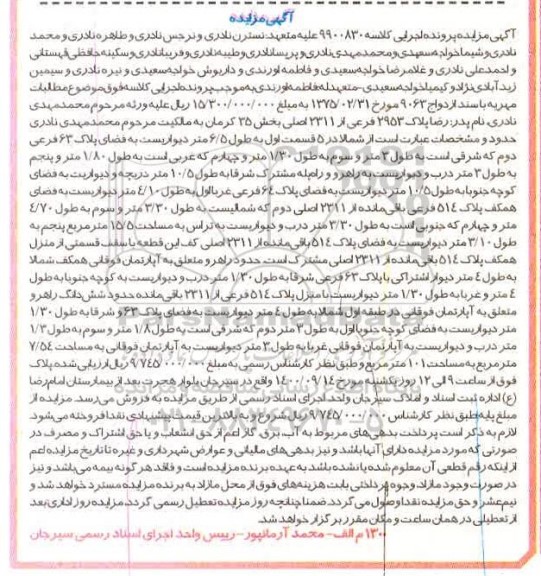 آگهی مزایده
آگهی مزایده پرونده اجرایی کلاسه ۹۹۰۰۸۳۰ علیه متعهد: نسترن نادری و نرجس نادری و طاهره نادری و محمد
نادری و شیما خواجه سعیدی و محمد مهدی نادری و پریسا نادری و طیبه نادری و فریبا نادری و سکینه حافظی قهستانی
و احمد علی نادری و غلامرضا خواجه سعیدی و فاطمه اورندی و داریوش خواجه سعیدی و نیره نادری و سیمین
زید آبادی نژاد و کیمیا خواجه سعیدی - متعهد له فاطمه اورندی به موجب پرونده اجرایی کلاسه فوق موضوع مطالبات
مهریه با سند ازدواج ۹۰۶۳ مورخ ۱۳۷۵/۰۲/۳۱ به مبلغ ۱۵/۳۰۰/۰۰۰/۰۰۰ ریال علیه ورثه مرحوم محمد مهدی
نادری، نام پدر: رضا پلاک ۲۹۵۳ فرعی از ۲۳۱۱ اصلی بخش ۳۵ کرمان به مالکیت مرحوم محمد مهدی نادری
حدود و مشخصات عبارت است از شمالا در ۵ قسمت اول به طول ۶/۵ متر دیواریست به فضای پلاک ۶۳ فرعی
دوم که شرقی است به طول ۳ متر و سوم به طول ۱/۳۰ متر و چهارم که غربی است به طول ۱/۸۰ متر و پنجم
به طول ۳ متر درب و دیواریست به راهرو و راه پله مشترک شرقا به طول ۱۰/۵ متر دریچه و دیواریست به فضای
کوچه جنوبا به طول ۱۰/۵ متر دیواریست به فضای پلاک ۶۴ فرعی غربا اول به طول ۴/۱۰ متر دیواریست به فضای
همکف پلاک ۵۱۴ فرعی باقی مانده از ۲۳۱۱ اصلی دوم که شمالیست به طول ۳/۳۰ متر و سوم به طول ۴/۷۰
متر و چهارم که جنوبی است به طول ۳/۳۰ متر درب و دیواریست به تراس به مساحت ۱۵/۵ متر مربع پنجم به
طول ۳/۱۰ متر دیواریست به فضای پلاک ۵۱۴ باقی مانده از ۲۳۱۱ اصلی کف این قطعه با سقف قسمتی از منزل
همکف پلاک ۵۱۴ باقی مانده از ۲۳۱۱ اصلی مشترک است. حدود راهرو متعلق به آپارتمان فوقانی همکف شمالا
به طول ۴ متر دیوار اشتراکی با پلاک ۶۳ فرعی شرقا به طول ۱/۳۰ متر درب و دیواریست به کوچه جنوبا به طول
۴ متر و غربا به طول ۱/۳۰ متر دیواریست با منزل پلاک ۵۱۴ فرعی از ۲۳۱۱ باقی مانده حدود شش دانگ راهرو
متعلق به آپارتمان فوقانی در طبقه اول شمالا به طول ۴ متر دیواریست به فضای پلاک ۶۳ و شرقا به طول ۱/۳۰
متر دیواریست به فضای کوچه جنوبا اول به طول ۳ متر دوم که شرقی است به طول ۱/۸ متر و سوم به طول ۱/۳
متر درب و دیواریست به آپارتمان فوقانی غربا به طول ۳ متر درب و دیواریست به آپارتمان فوقانی به مساحت ۷/۵۴
متر مربع به مساحت ۱۰۱ متر مربع و طبق نظر کارشناس رسمی به مبلغ ۹/۷۴۵/۰۰۰/۰۰۰ ریال ارزیابی شده پلاک
فوق از ساعت ۹ الی ۱۲ روز یکشنبه مورخ ۱۴۰۰/۰۹/۱۴ واقع در سیرجان بلوار هجرت بعد از بیمارستان امام رضا
(ع) اداره ثبت اسناد و املاک سیرجان واحد اجرای اسناد رسمی از طریق مزایده به فروش می رسد. مزایده از
مبلغ پایه طبق نظر کارشناس ۹/۷۴۵/۰۰۰/۰۰۰ ریال شروع و به بالاترین قیمت پیشنهادی نقدا فروخته می شود.
لازم به ذکر است پرداخت بدهی های مربوط به آب، برق، گاز اعم از حق انشعاب و یا حق اشتراک و مصرف در
صورتی که مورد مزایده دارای آنها باشد و نیز بدهی های مالیاتی و عوارض شهرداری و غیره تا تاریخ مزایده اعم
از اینکه رقم قطعی آن معلوم شده یا نشده باشد به عهده برنده مزایده است و فاقد هر گونه بیمه می باشد و نیز
در صورت وجود مازاد، وجوه پرداختی بابت هزینه های فوق از محل مازاد به برنده مزایده مسترد خواهد شد و
نیم عشر و حق مزایده نقدا وصول می گردد. ضمنا چنانچه روز مزایده تعطیل رسمی گردد، مزایده روز اداری بعد
از تعطیلی در همان ساعت و مکان مقرر برگزار خواهد شد.
۱۳۰۰ م الف - محمد آرمانپور - رییس واحد اجرای اسناد رسمی سیرجان